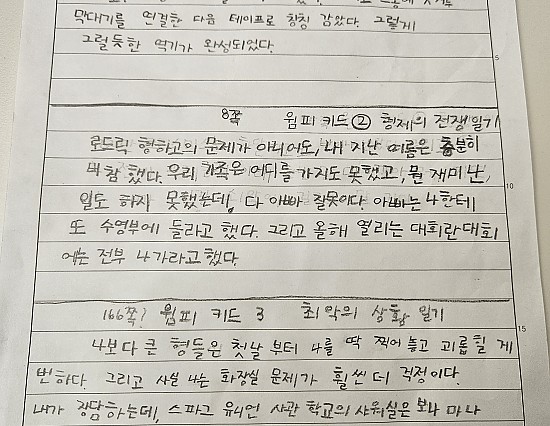 막대기를 연결한 다음 테이프로 칭칭 감았다. 그렇게
그럴듯한 역기가 완성되었다.
5
8쪽 윔피 키드 ② 형제의 전쟁 일기
로드릭 형하고의 문제가 아니어도, 내 지난 여름은 충분히
비참했다. 우리 가족은 어디를 가지도 못했고, 뭘 재미난,
10
일도 하지 못했는데, 다 아빠 잘못이다. 아빠는 나한테
또 수영부에 들라고 했다. 그리고 올해 열리는 대회란 대회
에는 전부 나가라고 했다.
166쪽? 윔피 키드 3 최악의 상황 일기
15
나보다 큰 형들은 첫날 부터 나를 딱 찍어 놓고 괴롭힐 게
번하다. 그리고 사실 나는 화장실 문제가 훨씬 더 걱정이다.
내가 장담하는데, 스파그 유니언 사관 학교의 샤워실은 보나 마나